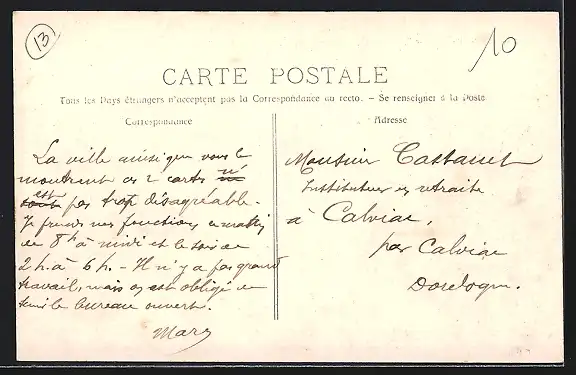 13
10
CARTE POSTALE
Tous les Pays étrangers n'acceptent pas la Correspondance au recto. - Se renseigner à la Poste
Correspondance
Adresse
La ville ainsi que vous le
montrent ces 2 cartes n'
est pas trop désagréable.
Je prends mes fonctions le matin
de 8h à midi et le soir de
2 h. à 6 h. - Il n'y a pas grand
travail, mais on est obligé de
tenir le bureau ouvert.
Mary
Monsieur Castanet
Instituteur en retraite
à Calviac,
par Calviac
Dordogne.